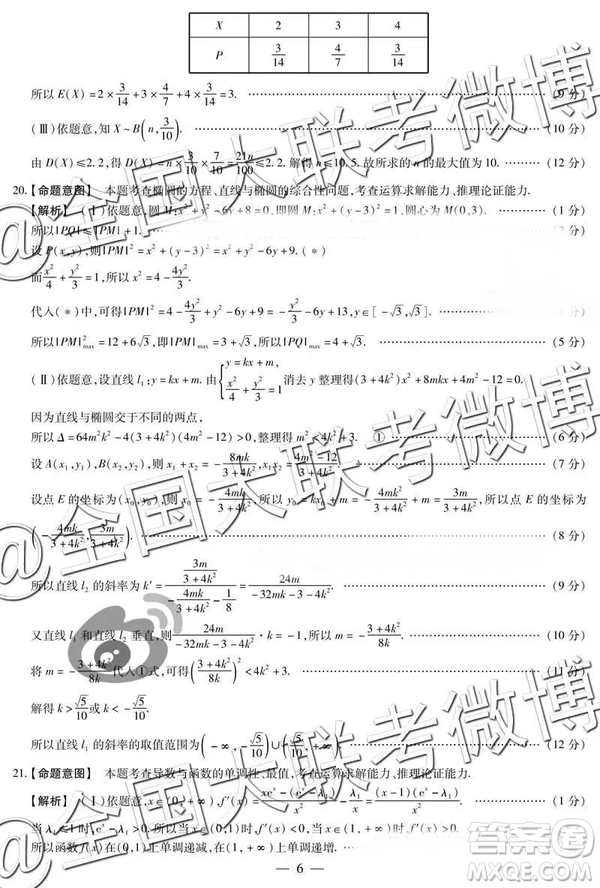 X 2 3 4
P 3/14 4/7 3/14
所以E(X)=2×3/14+3×4/7+4×3/14=3. (9分)
(Ⅲ)依题意,知X~B(n,3/10). (10分)
由D(X)≤2.2,得n×3/10×7/10=21n/100≤2.2.解得n≤10.5.故所求的n的最大值为10. (12分)
20.【命题意图】 本题考查椭圆的方程,直线与椭圆的综合性问题,考查运算求解能力,推理论证能力.
【解析】 (Ⅰ)依题意,圆M:x²+y²-6y+8=0,即圆M:x²+(y-3)²=1,圆心为M(0,3). (1分)
所以|PQ|≤|PM|+1. (2分)
设P(x,y),则|PM|²=x²+(y-3)²=x²+y²-6y+9.(*)
而x²/4+y²/3=1,所以x²=4-4y²/3.
代入(*)中,可得|PM|²=4-4y²/3+y²-6y+9=-y²/3-6y+13,y∈[-√3,√3]. (4分)
所以|PM|²max=12+6√3,即|PM|max=3+√3,所以|PQ|max=4+√3. (5分)
(Ⅱ)依题意,设直线l₁:y=kx+m.由{y=kx+m, x²/4+y²/3=1 消去y整理得(3+4k²)x²+8mkx+4m²-12=0.
因为直线与椭圆交于不同的两点,
所以Δ=64m²k²-4(3+4k²)(4m²-12)>0,整理得m²<4k²+3. ① (6分)
设A(x₁,y₁),B(x₂,y₂),则x₁+x₂=-8mk/(3+4k²),x₁x₂=(4m²-12)/(3+4k²). (7分)
设点E的坐标为(x₀,y₀),则x₀=-4mk/(3+4k²),所以y₀=kx₀+m=-4mk²/(3+4k²)+m=3m/(3+4k²),所以点E的坐标为
(-4mk/(3+4k²),3m/(3+4k²)). (8分)
所以直线l₂的斜率为k′=(3m/(3+4k²))/(-4mk/(3+4k²)-1/8)=24m/(-32mk-3-4k²). (9分)
又直线l₁和直线l₂垂直,则24m/(-32mk-3-4k²)·k=-1,所以m=-(3+4k²)/8k. (10分)
将m=-(3+4k²)/8k代入①式,可得((3+4k²)/8k)²<4k²+3. (11分)
解得k>√5/10或k<-√5/10.
所以直线l₁的斜率的取值范围为(-∞,-√5/10)∪(√5/10,+∞). (12分)
21.【命题意图】 本题考查导数与函数的单调性、最值,考查运算求解能力、推理论证能力.
【解析】 (Ⅰ)依题意,x∈(0,+∞),f′(x)=(xeˣ-(eˣ-λ₁))/x²-λ₁/x=(x-1)(eˣ-λ₁)/x². (1分)
当λ₁≤1时,eˣ-λ₁>0.所以当x∈(0,1)时,f′(x)<0,当x∈(1,+∞)时,f′(x)>0.
所以函数f(x)在(0,1)上单调递减,在(1,+∞)上单调递增.
— 6 —
@全国大联考微博
@全国大联考微博
@全国大联考微博
答案圈
MXQE.COM